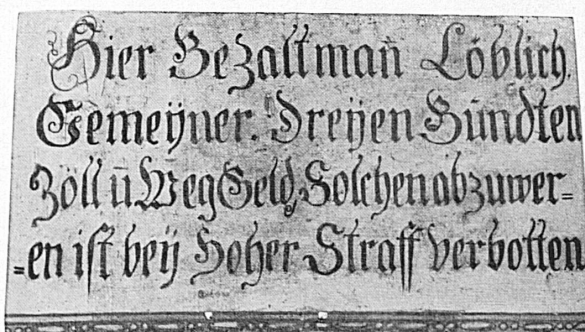 Hier Bezalt man Löblich.
Gemeÿner. Dreÿen Bündten
Zoll ū Weg Geld, Solchen abzuwer=
=en ist beÿ Hoher Straff verbotten